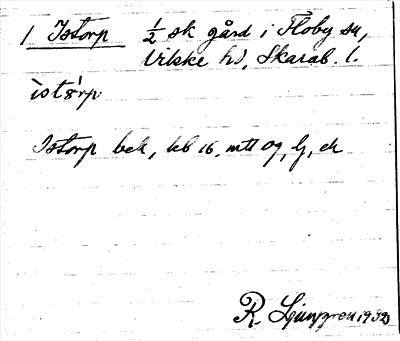 1 Istorp ½ sk gård i Floby sn,
Vilske hd, Skarab. l.
Istorp bek, kb 16, mtt og, lj, ek
R. Ljunggren 1932